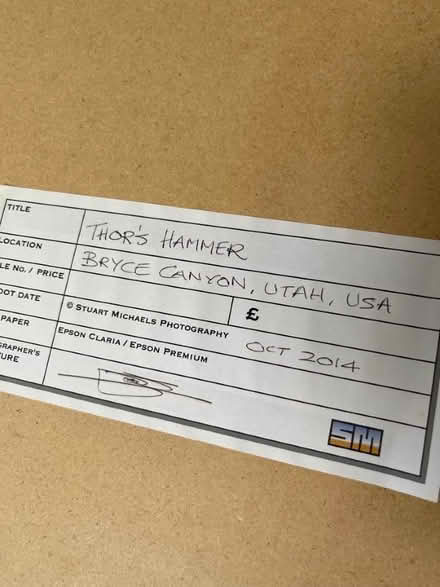 TITLE THOR'S HAMMER
LOCATION BRYCE CANYON, UTAH, USA
LE NO. / PRICE £
OOT DATE © STUART MICHAELS PHOTOGRAPHY OCT 2014
PAPER EPSON CLARIA / EPSON PREMIUM
GRAPHER'S
URE
SM